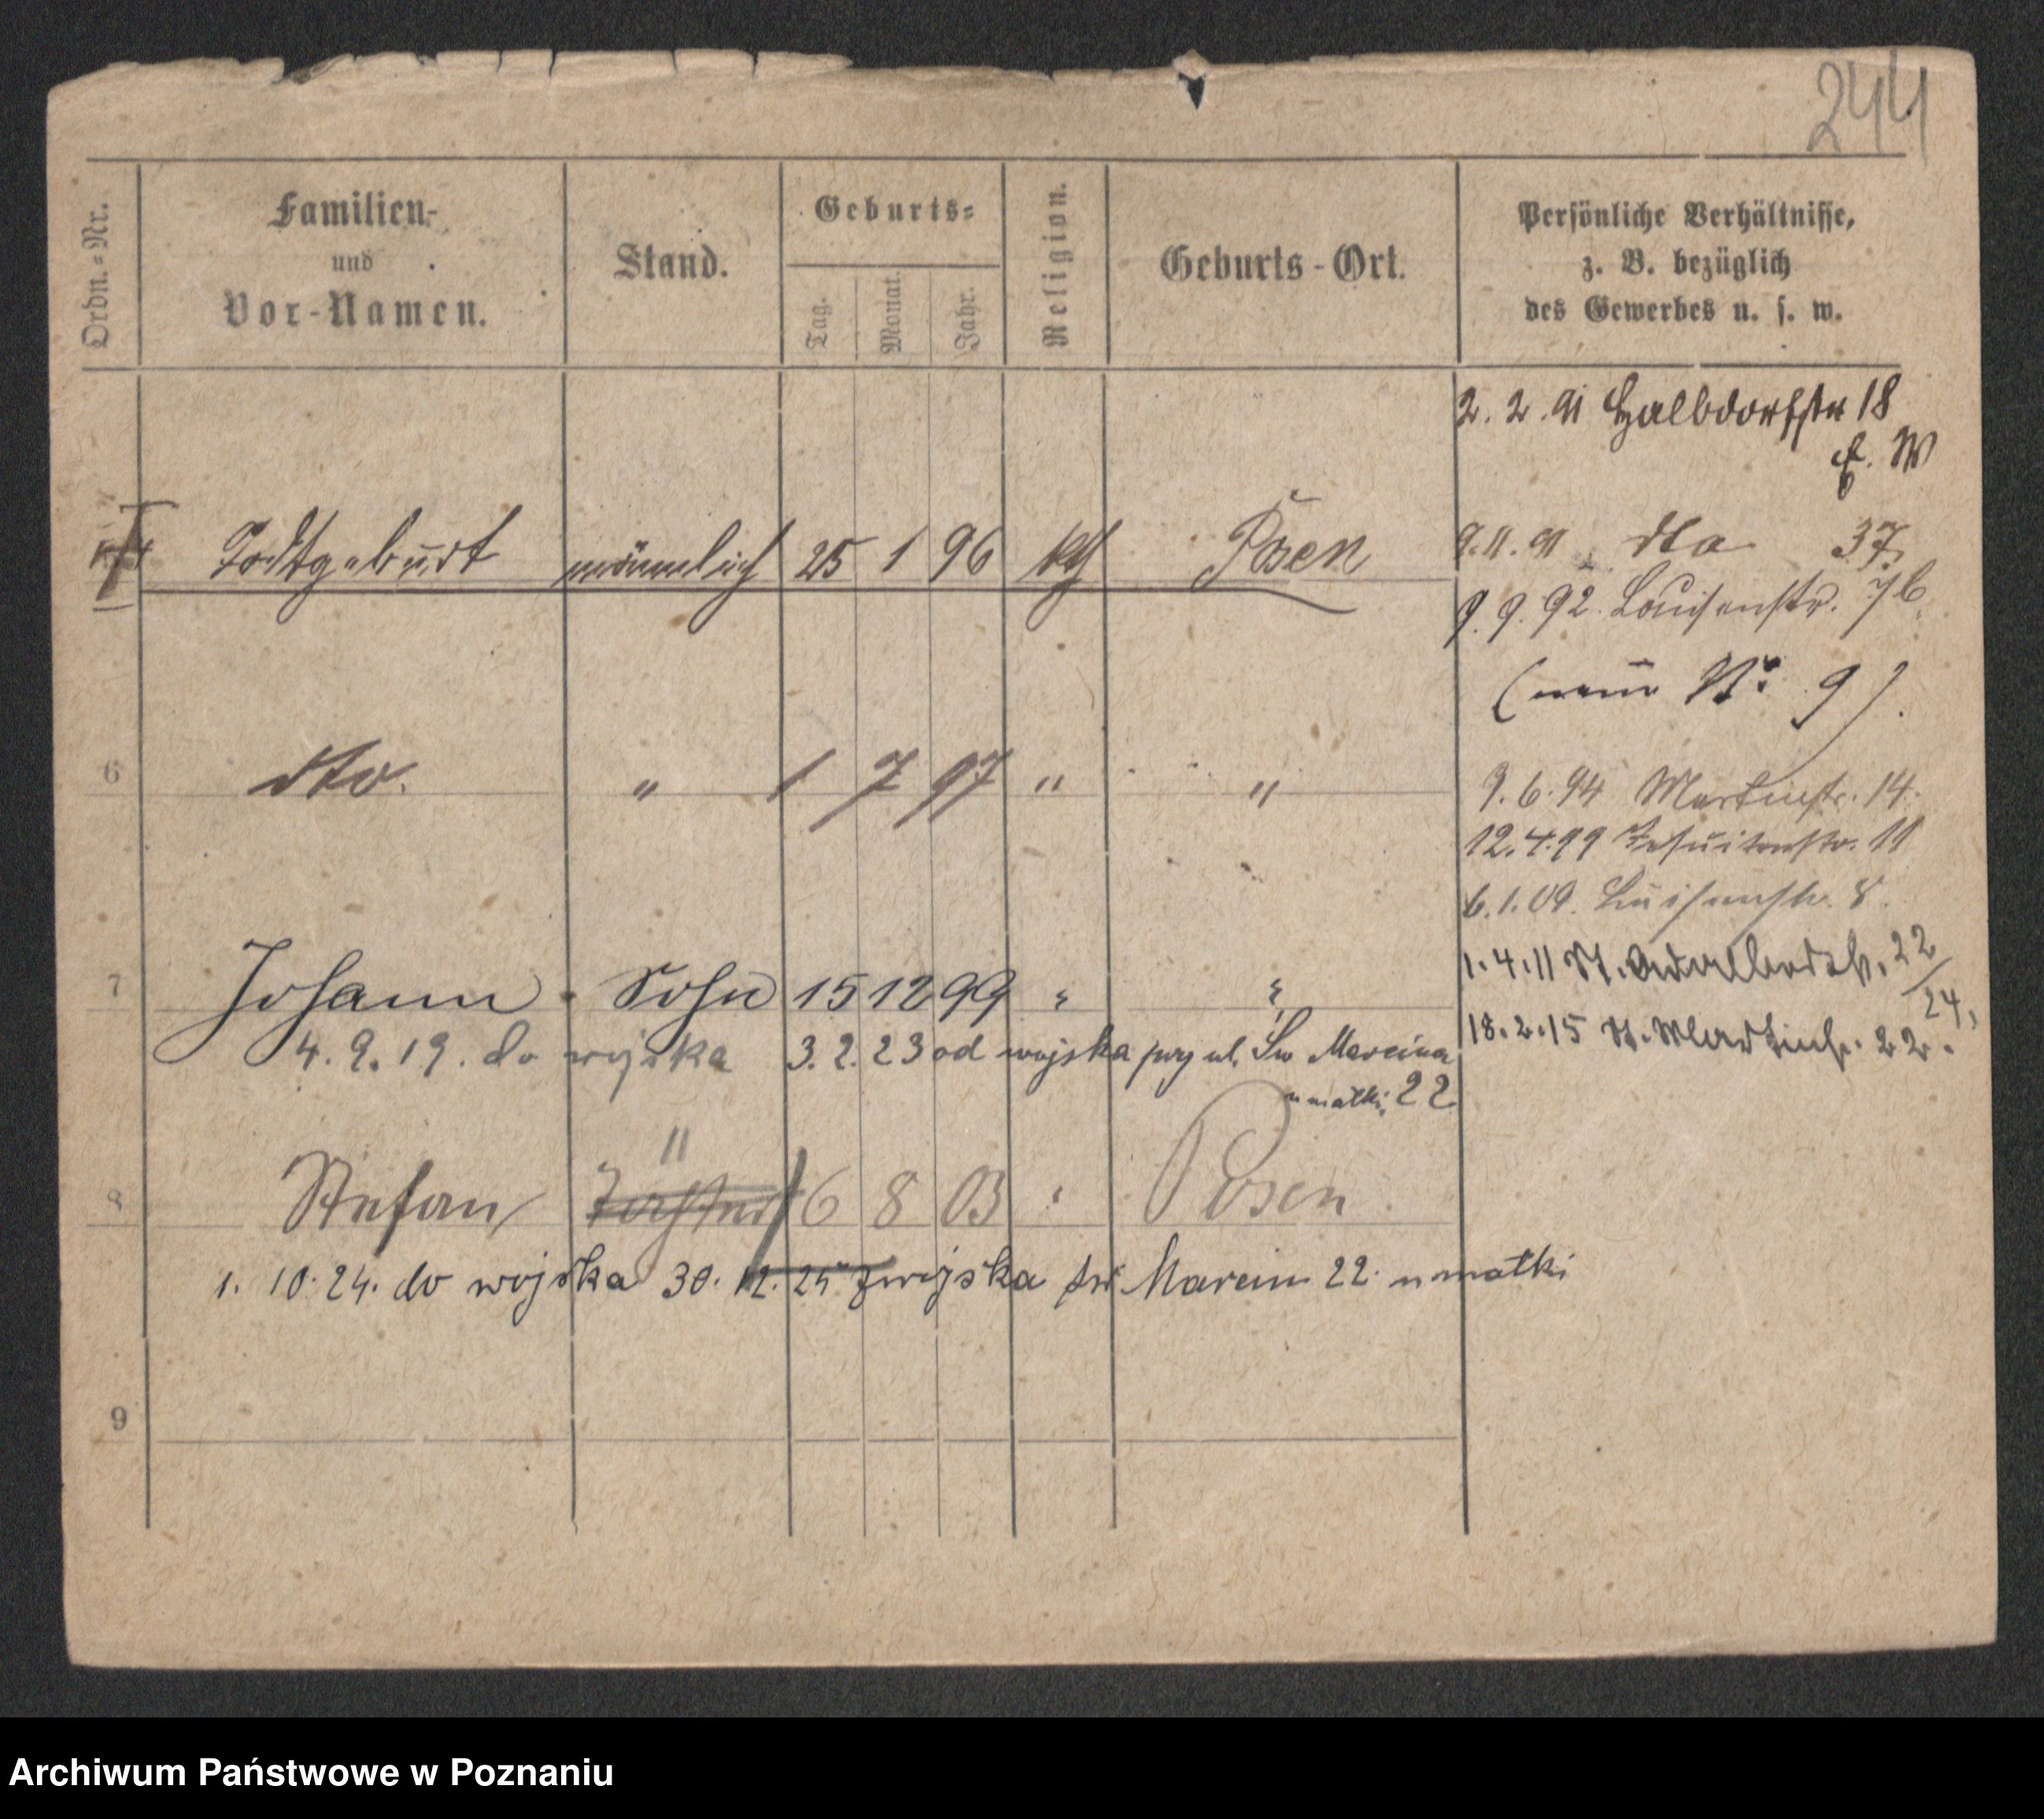 244
Ordn.-Nr.
Familien-
und
Vor-Namen.
Stand.
Geburts-
Tag.
Monat.
Jahr.
Religion.
Geburts-Ort.
Persönliche Verhältnisse,
z. B. bezüglich
des Gewerbes u. s. w.
2. 2. 91 Halbdorfstr 18
E. W
Todtgeburt männlich 25 1 96 kth Posen
9.11.91 dto 37
9. 9. 92. Louisenstr. 7b
(neue No 9).
6 dto. " 1 7 97 " "
9. 6. 94 Martinstr. 14.
12.4.99 Jesuitenstr. 11
6.1.09. Luisenstr. 8.
7 Johann Sohn 15 12 99 " "
1.4.11 St. Adalbertstr. 22/24,
4. 9. 19. do wojska 3. 2. 23 od wojska przy ul. Św Marcina
u matki, 22
18.2.15 St. Martinstr. 22.
"
8 Stefan Tochter 6 8 03 " Posen.
1. 10. 24. do wojska 30. 12. 25 z wojska św Marcin 22. u matki
9
Archiwum Państwowe w Poznaniu